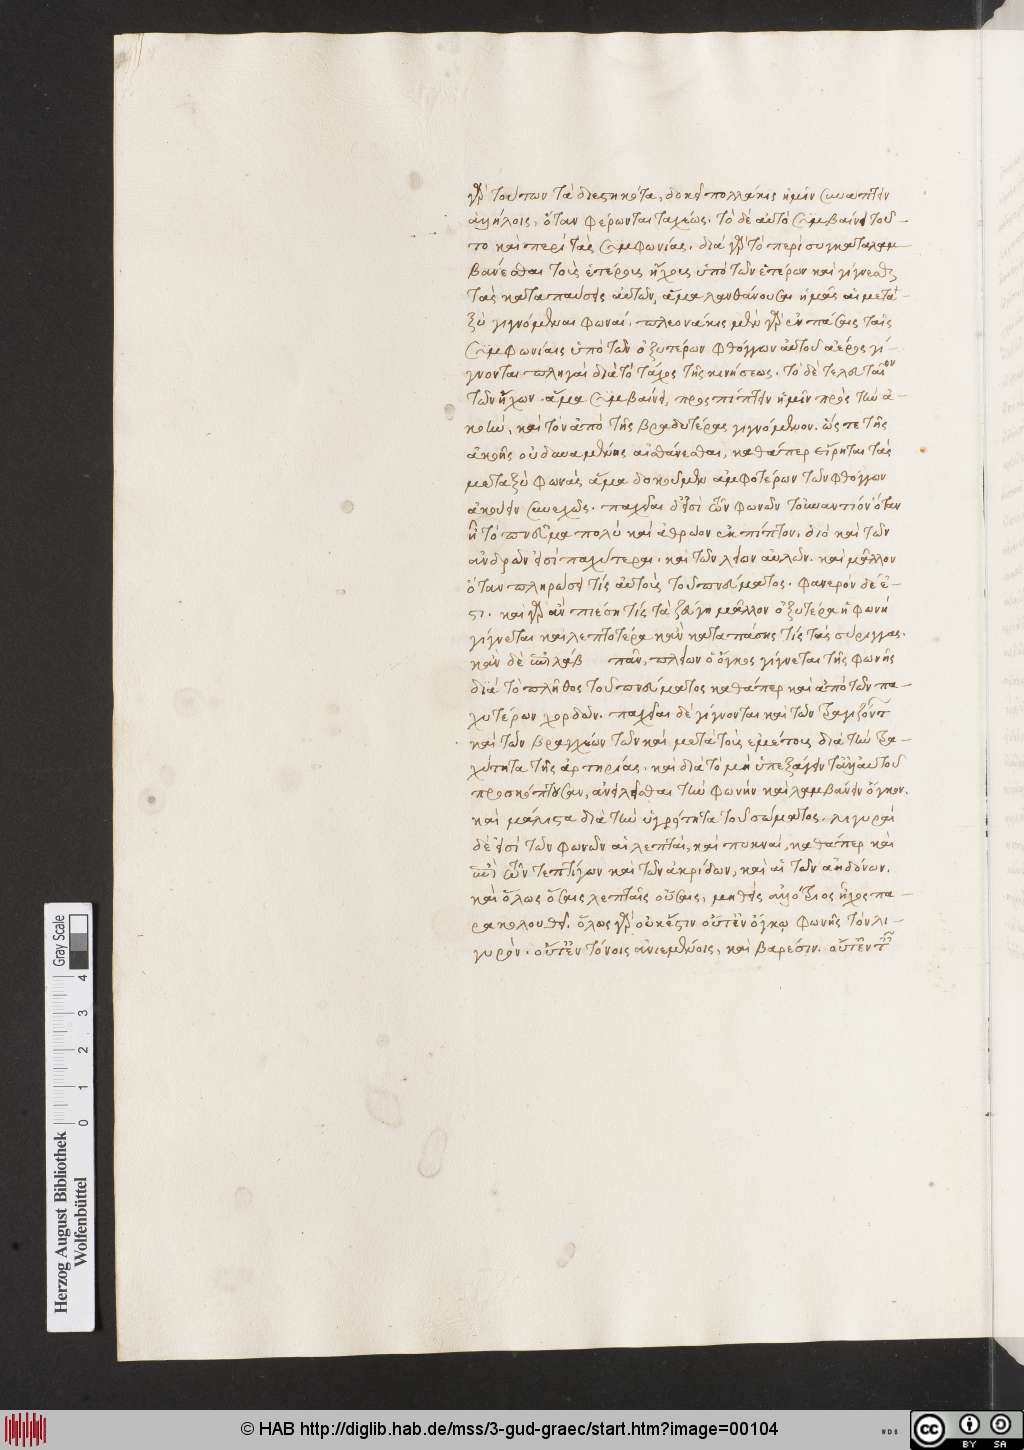 γὰρ τούτων τὰ διεστηκότα, δοκεῖ πολλάκις ἡμῖν συναπτειν
ἀλλήλοις, ὅταν φέρωνται ταχέως. τὸ δὲ αὐτὸ συμβαίνει τοῦ-
το καὶ περὶ τὰς συμφωνίας. διὰ γὰρ τὸ περισυγκαταλαμ-
βανέσθαι τοὺς ἑτέρους ἤχους ὑπὸ τῶν ἑτέρων καὶ γίγνεσθαι
τὰς καταπαύσεις αὐτῶν, ἅμα λανθάνουσαι ἡμᾶς αἱ μετα-
ξὺ γιγνόμεναι φωναί. πλεονάκις μὲν γὰρ ἐν πάσαις ταῖς
συμφωνίαις ὑπὸ τῶν ὀξυτέρων φθόγγων αὐτοῦ ἀέρος γί-
γνονται πληγαὶ διὰ τὸ τάχος τῆς κινήσεως. τὸ δὲ τελευταῖον
τῶν ἤχων. ἅμα συμβαίνει, προσπίπτειν ἡμῖν πρὸς τὴν ἀ-
κοὴν, καὶ τὸν ἀπὸ τῆς βραδυτέρας γιγνόμενον. ὥστε τῆς
ἀκοῆς οὐ δυναμένης αἰσθάνεσθαι, καθάπερ εἴρηται τὰς
μεταξὺ φωνὰς ἅμα δοκοῦμεν ἀμφοτέρων τῶν φθόγγων
ἀκούειν συνεχῶς. παχεῖαι δ' εἰσὶ τῶν φωνῶν τοὐναντίον ὅταν
ἦ τὸ πνεῦμα πολὺ καὶ ἀθρόον ἐκπίπτον. διὸ καὶ τῶν
ἀνδρῶν εἰσὶ παχύτεραι. καὶ τῶν λείων αὐλῶν. καὶ μᾶλλον
ὅταν πληρώσει τὶς αὐτοὺς τοῦ πνεύματος. φανερὸν δέ ἐ-
στι. καὶ γὰρ ἂν πιέση τὶς τὰ ζεύγη μᾶλλον ὀξυτέρα ἡ φωνὴ
γίγνεται καὶ λεπτοτέρα κἂν κατασπάσης τὶς τὰς σύριγγας.
κἂν δὲ ἐπιλάβ παν, πλείων ὁ ὄγκος γίγνεται τῆς φωνῆς
διὰ τὸ πλῆθος τοῦ πνεύματος καθάπερ καὶ ἀπὸ τῶν πα-
χυτέρων χορδῶν. παχεῖαι δὲ γίγνονται καὶ τῶν τραγιζόντων
καὶ τῶν βραγχιών των καὶ μετὰ τοὺς ἐμέτους διὰ τὴν τρα-
χύτητα τῆς ἀρτηρίας. καὶ διὰ τὸ μὴ ὑπεξάγειν ἀλλ' αὐτοῦ
προσκόπτουσαν, ἀνειλεῖσθαι τὴν φωνὴν καὶ λαμβάνειν ὄγκον.
καὶ μάλιστα διὰ τὴν ὑγρότητα τοῦ σώματος. λιγυραὶ
δὲ εἰσὶ τῶν φωνῶν αἱ λεπταὶ, καὶ πυκναί, καθάπερ καὶ
ἐπὶ τῶν τεττίγων καὶ τῶν ἀκρίδων, καὶ αἱ τῶν ἀηδόνων.
καὶ ὅλως ὅσαις λεπταῖς οὔσαις, μηθεὶς ἀλλότριος ἦχος πα-
ρακολουθεῖ. ὅλως γὰρ οὐκ ἔστιν οὔτ' ἐν ὄγκῳ φωνῆς τὸν λι-
γυρὸν. οὔτ' ἐν τόνοις ἀνιεμένοις, καὶ βαρέσιν. οὔτ' ἐν ταῖς
Herzog August Bibliothek
Wolfenbüttel
0 1 2 3 4
Gray Scale
© HAB http://diglib.hab.de/mss/3-gud-graec/start.htm?image=00104
WDB
cc BY SA